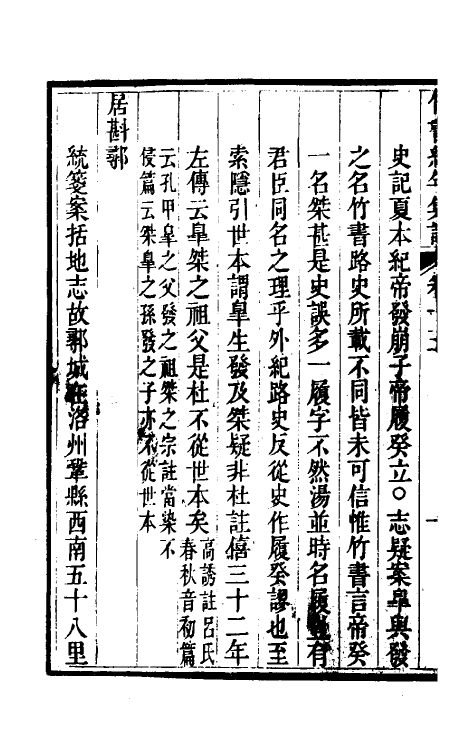 史記夏本紀帝發崩子帝履癸立〇志疑案皐與發
之名竹書路史所載不同皆未可信惟竹書言帝癸
一名桀甚是史誤多一履字不然湯並時名履豈有
君臣同名之理乎外紀路史反從史作履癸謬也至
索隱引世本謂皐生發及桀疑非杜註僖三十二年
左傳云皐桀之祖父是杜不從世本矣
高誘註呂氏
春秋音初篇
云孔甲皐之父發之祖桀之宗註當染不
侵篇云桀皐之孫發之子亦不從世本
居斟鄩
統箋案括地志故鄩城在洛州鞏縣西南五十八里